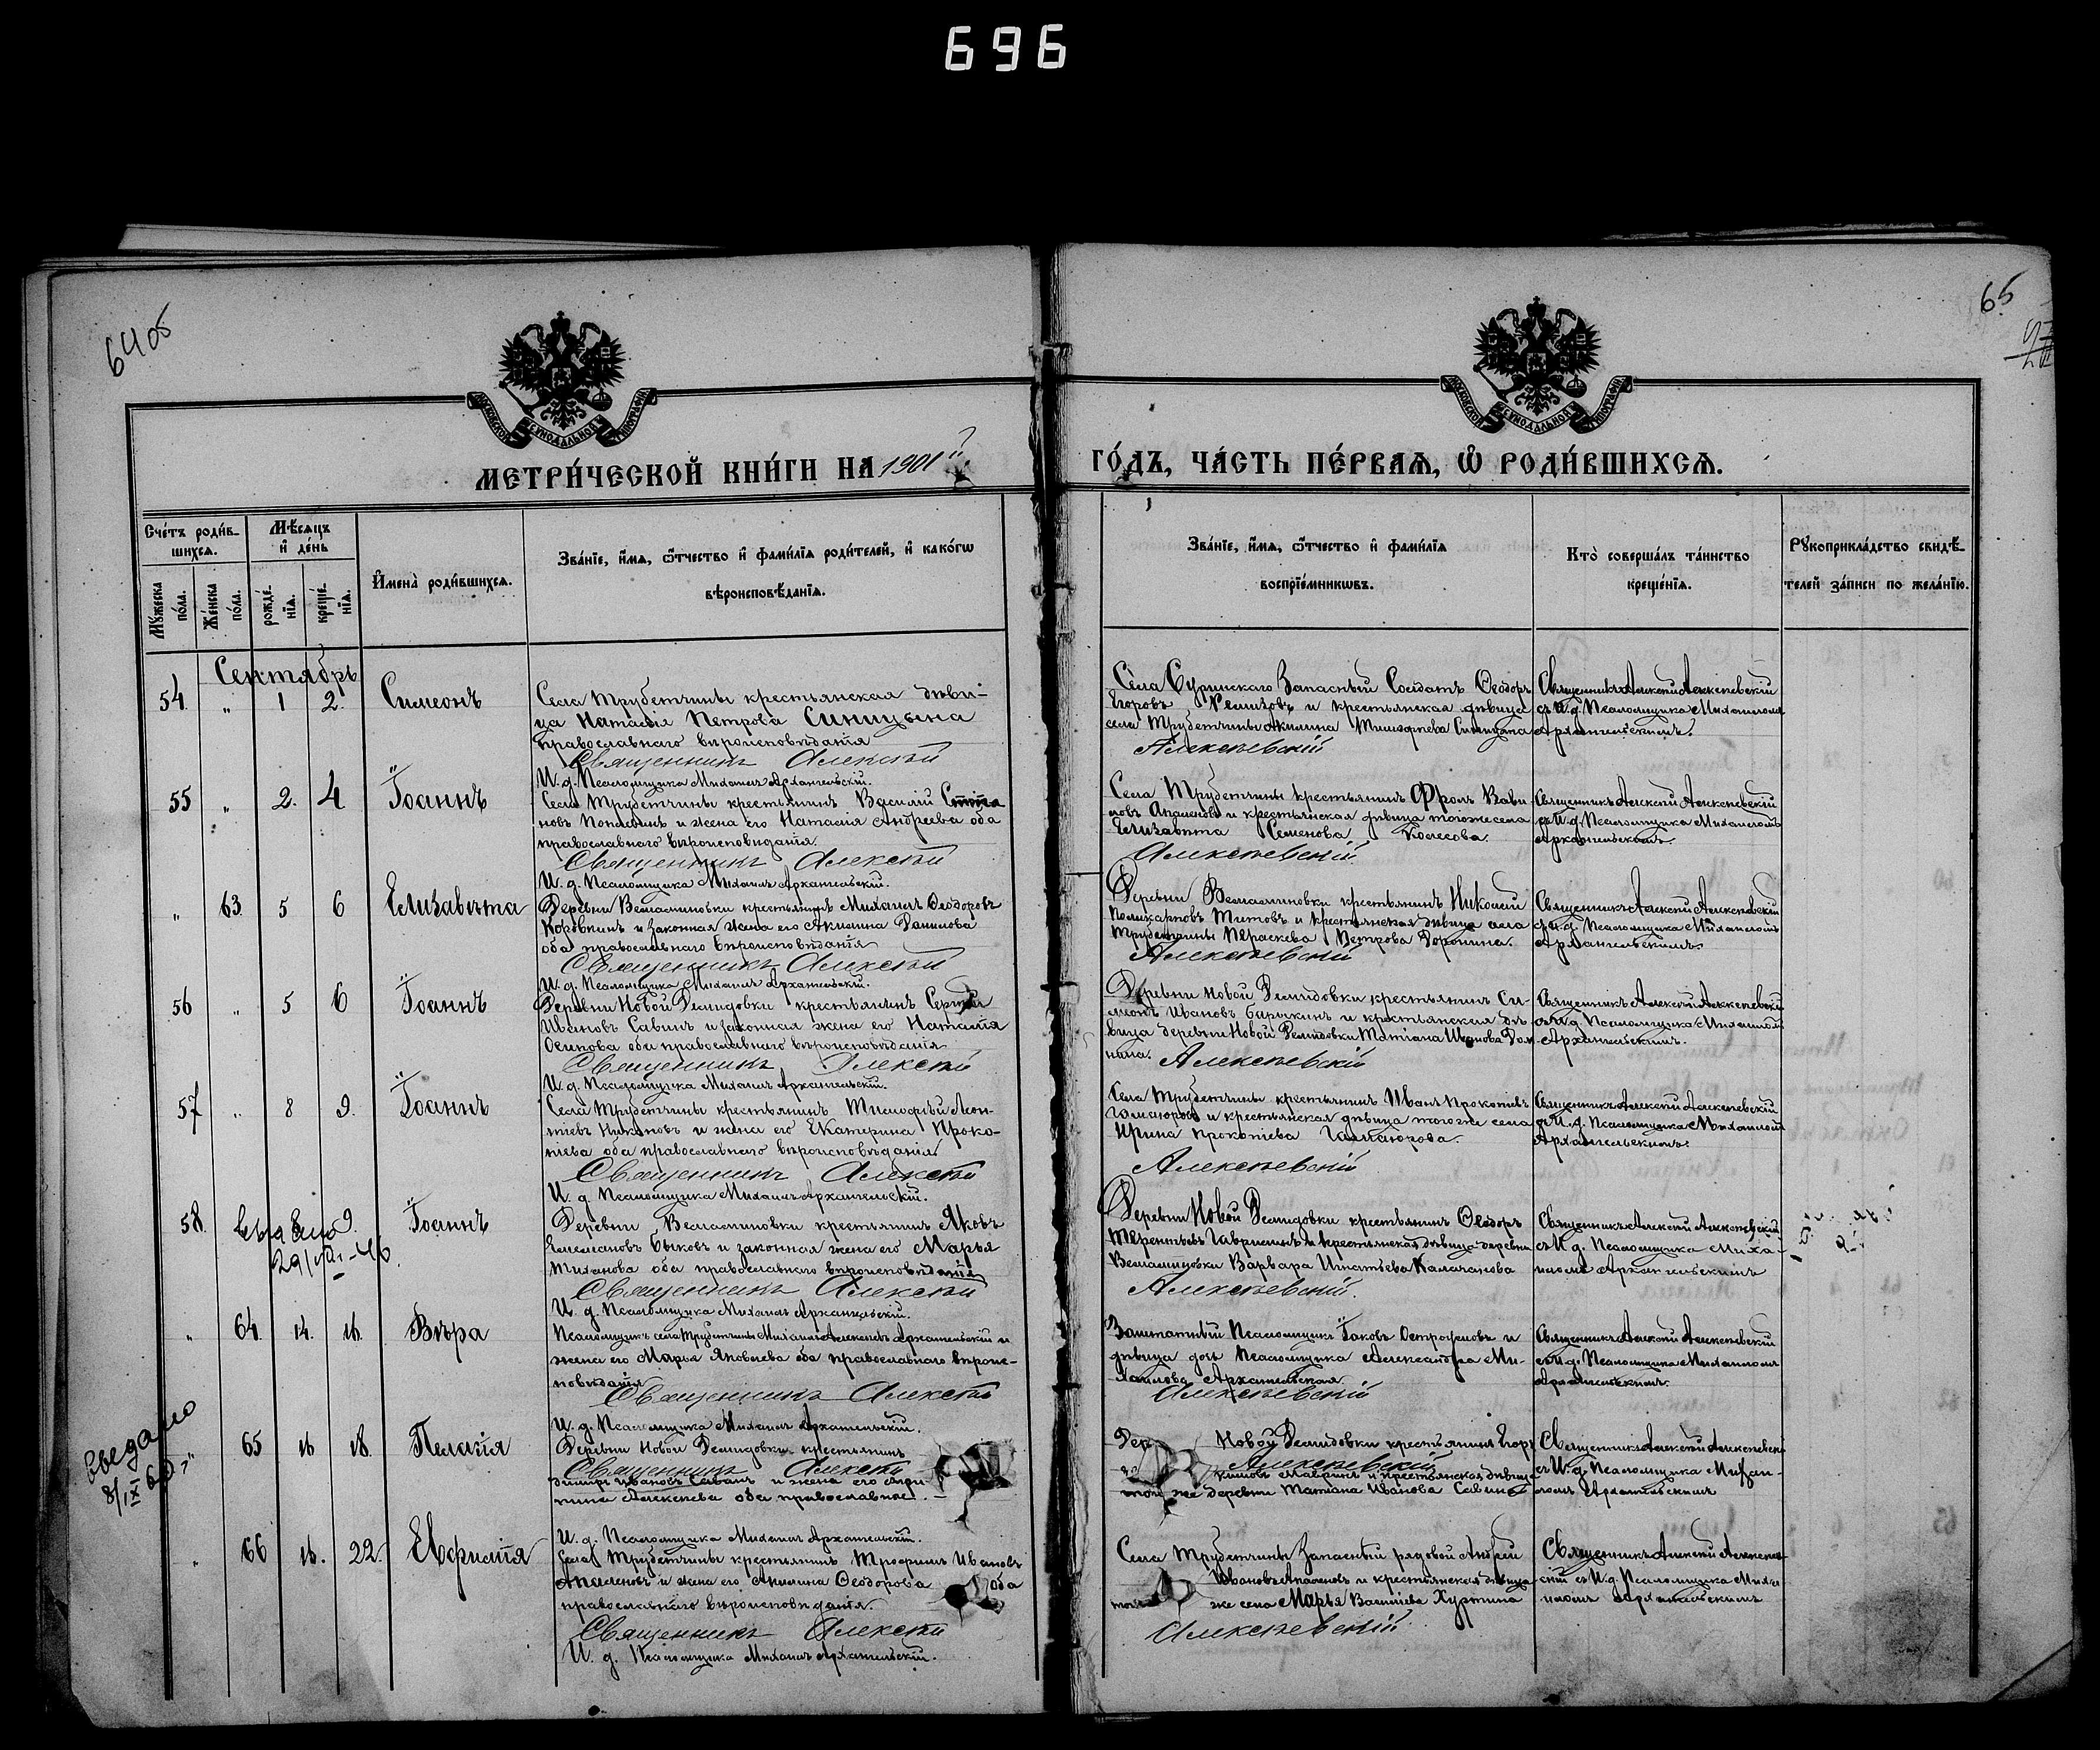 696
64 об
65
МОСКОВСКОЙ СѴНОДАЛЬНОЙ ТИПОГРАФІИ
МОСКОВСКОЙ СѴНОДАЛЬНОЙ ТИПОГРАФІИ
МЕТРИ́ЧЕСКОЙ КНИ́ГИ НА 1901й
ГО́ДЪ, ЧА́СТЬ ПЕ́РВАѦ, Ѽ РОДИ́ВШИХСѦ.
Сче́тъ роди́в-
шихсѧ.
Мѣ́сяцъ
и҆ де́нь
Мꙋ́жеска
по́ла.
Же́нска
по́ла.
рожде́-
нїѧ.
креще́-
нїѧ.
И҆мена̀ роди́вшихсѧ.
Зва́нїе, и҆́мѧ, ѻ҆́тчество и҆ фами́лїѧ роди́телей, и҆ како́гѡ
вѣроисповѣ́данїѧ.
Зва́нїе, и҆́мѧ, ѻ҆́тчество и҆ фами́лїѧ
воспрїе́мникѡвъ.
Кто̀ соверша́лъ та́инство
креще́нїѧ.
Рꙋкоприкла́дство свидѣ́-
телей за́писи по жела́нїю.
Сентябрь
54 " 1 2. Симеонъ
Села Трубетчины крестьянская дѣви-
ца Наталія Петрова Синицына
православнаго вѣроисповѣданія
Священникъ Алексѣй
И. д. Псаломщика Михаилъ Архангельскій.
Села Запасный Солдатъ Ѳеодоръ
Егоровъ и крестьянская дѣвица
села Трубетчины Акилина Синицына
Алексѣевскій
Священникъ Алексѣй Алексѣевскій
съ И. д. Псаломщика Михаиломъ
Архангельскимъ.
55 " 2. 4 Іоаннъ
Села Трубетчины крестьянинъ Василій
новъ и жена его Наталія Андреева оба
православнаго вѣроисповѣданія.
Священникъ Алексѣй
И. д. Псаломщика Михаилъ Архангельскій.
Села Трубетчины крестьянинъ Фролъ Вави-
ловъ и крестьянская дѣвица тогоже села
Елизавета Семенова Колесова.
Алексѣевскій
Священникъ Алексѣй Алексѣевскій
съ И. д. Псаломщика Михаиломъ
Архангельскимъ.
" 63 5 6 Елизавета
Деревни Вельяминовки крестьянинъ Михаилъ Ѳеодоровъ
Коровкинъ и законная жена его Акилина Данилова
оба православнаго вѣроисповѣданія
Священникъ Алексѣй
И. д. Псаломщика Михаилъ Архангельскій.
Деревни Вельяминовки крестьянинъ Николай
Поликарповъ Титовъ и крестьянская дѣвица села
Трубетчины Параскева Петрова Доронина.
Алексѣевскій
Священникъ Алексѣй Алексѣевскій
съ И. д. Псаломщика Михаиломъ
Архангельскимъ.
56 " 5 6 Іоаннъ
Деревни Новой Демидовки крестьянинъ Сергѣй
Ивановъ Савинъ и законная жена его Наталія
Осипова оба православнаго вѣроисповѣданія
Священникъ Алексѣй
И. д. Псаломщика Михаилъ Архангельскій.
Деревни Новой Демидовки крестьянинъ Си-
Ивановъ и крестьянская дѣ-
вица деревни Новой Демидовки Татіана Иванова
Алексѣевскій
Священникъ Алексѣй Алексѣевскій
съ И. д. Псаломщика Михаиломъ
Архангельскимъ.
57 " 8 9. Іоаннъ
Села Трубетчины крестьянинъ Тимоѳѣй Леон-
тіевъ Никоновъ и жена его Екатерина Проко-
піева оба православнаго вѣроисповѣданія
Священникъ Алексѣй
И. д. Псаломщика Михаилъ Архангельскій.
Села Трубетчины крестьянинъ Иванъ Прокопіевъ
и крестьянская дѣвица тогоже села
Ирина Прокопіева
Алексѣевскій
Священникъ Алексѣй Алексѣевскій
съ И. д. Псаломщика Михаиломъ
Архангельскимъ.
58. 9. Іоаннъ
Деревни Вельяминовки крестьянинъ Яковъ
Емельяновъ Быковъ и законная жена его Марья
Тиханова оба православнаго вѣроисповѣданія
Священникъ Алексѣй
И. д. Псаломщика Михаилъ Архангельскій.
Деревни Новой Демидовки крестьянинъ Ѳеодоръ
Терентьевъ и крестьянская дѣвица деревни
Вельяминовки Варвара Игнатьева Калачанова
Алексѣевскій.
Священникъ Алексѣй Алексѣевскій
съ И. д. Псаломщика Миха-
иломъ Архангельскимъ
" 64 14. 16. Вѣра
Псаломщикъ села Трубетчины Михаилъ Алексѣевъ Архангельскій и
жена его Марья Яковлева оба православнаго вѣроис-
повѣданія
Священникъ Алексѣй
И. д. Псаломщика Михаилъ Архангельскій.
Заштатный Псаломщикъ Іаковъ и
дѣвица дочь Псаломщика Александра Ми-
хаилова Архангельская.
Алексѣевскій
Священникъ Алексѣй Алексѣевскій
съ И. д. Псаломщика Михаиломъ
Архангельскимъ.
введано
" 65 16 18. Пелагія
Деревни Новой Демидовки крестьянинъ
Священникъ Алексѣй
Ивановъ Савинъ и жена его
Алексѣева оба православные.
И. д. Псаломщика Михаилъ Архангельскій.
Дер Новой Демидовки крестьянинъ Егоръ
Алексѣевскій
и крестьянская дѣвица
той же деревни Татіана Иванова Савина
Священникъ Алексѣй Алексѣевскій
съ И. д. Псаломщика Михаи-
ломъ Архангельскимъ
" 66 16. 22. Евфимія
Села Трубетчины крестьянинъ Трофимъ Ивановъ
и жена его Акилина Ѳеодорова оба
православнаго вѣроисповѣданія.
Священникъ Алексѣй
И. д. Псаломщика Михаилъ Архангельскій.
Села Трубетчины Запасный рядовой Андрей
Ивановъ и крестьянская дѣвица
же села Марья Васильева Хуртина
Алексѣевскій
Священникъ Алексѣй Алексѣев-
скій съ И. д. Псаломщика Миха-
иломъ Архангельскимъ